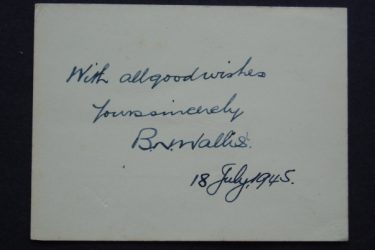 With all good wishes
Yours sincerely
B.N.Wallis.
18 July, 1945.